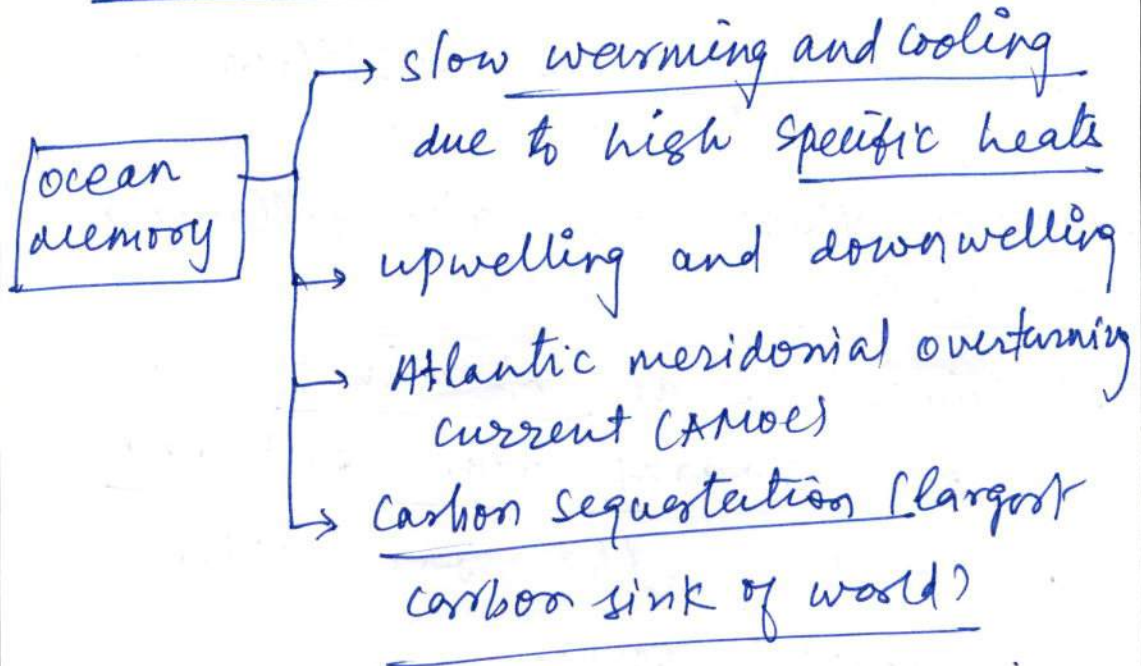 slow warming and cooling
due to high specific heats
ocean
memory
upwelling and downwelling
Atlantic meridonial overturning
current (AMOC)
Carbon sequestation (largest
carbon sink of world)